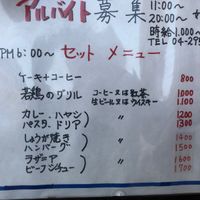 アルバイト募集
11:00〜
20:00〜
時給1,000〜
TEL 04-29
PM6:00〜 セット メニュー
ケーキ+コーヒー 800
若鶏のグリル コーヒー又は紅茶 1,000
生ビール又はウイスキー 1,100
カレー、ハヤシ 1200
パスタ、ドリア 1300
しょうが焼き 1400
ハンバーグ 1500
ラザニア 1600
ビーフシチュー 1700